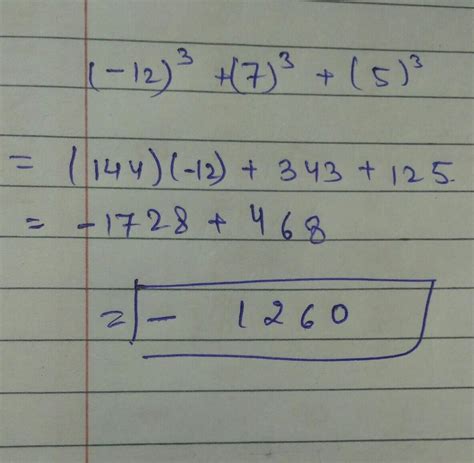 (-12)³ + (7)³ + (5)³
= (144)(-12) + 343 + 125
= -1728 + 468
= - 1260